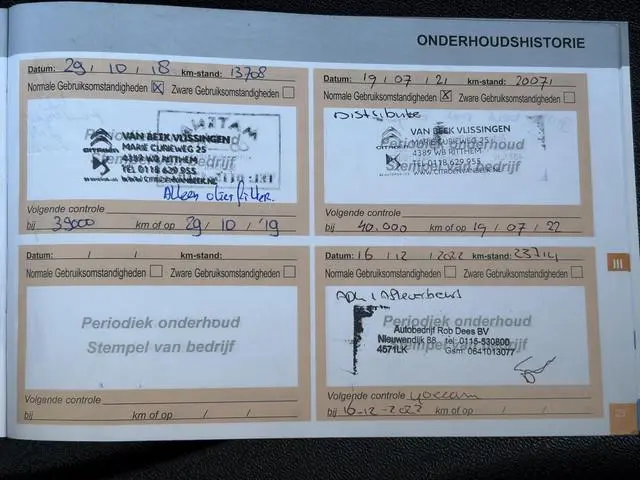 ONDERHOUDSHISTORIE
Datum: 29 / 10 / 18 km-stand: 13708
Normale Gebruiksomstandigheden Zware Gebruiksomstandigheden
VAN BEEK VLISSINGEN
MARIE CURIEWEG 25
4389 WB RITTHEM
TEL 0118 629 955
Alleen oliefilter.
Volgende controle
bij 39000 km of op 29 / 10 / '19
Datum: 19 / 07 / 21 km-stand: 20071
Normale Gebruiksomstandigheden Zware Gebruiksomstandigheden
Distributie
VAN BEEK VLISSINGEN
MARIE CURIEWEG 25
4389 WB RITTHEM
TEL 0118 629 955
Stempel van bedrijf
Volgende controle
bij 40.000 km of op 19 / 07 / 22
Datum: / / km-stand:
Normale Gebruiksomstandigheden Zware Gebruiksomstandigheden
Periodiek onderhoud
Stempel van bedrijf
Volgende controle
bij km of op / /
Datum: 16 / 12 / 2022 km-stand: 23714
Normale Gebruiksomstandigheden Zware Gebruiksomstandigheden
Periodiek onderhoud
Autobedrijf Rob Dees BV
Nieuwendijk 88 tel: 0115-530800
4571LK Gsm: 0641013077
Volgende controle
bij 16-12-2022 km of op / /
III
25